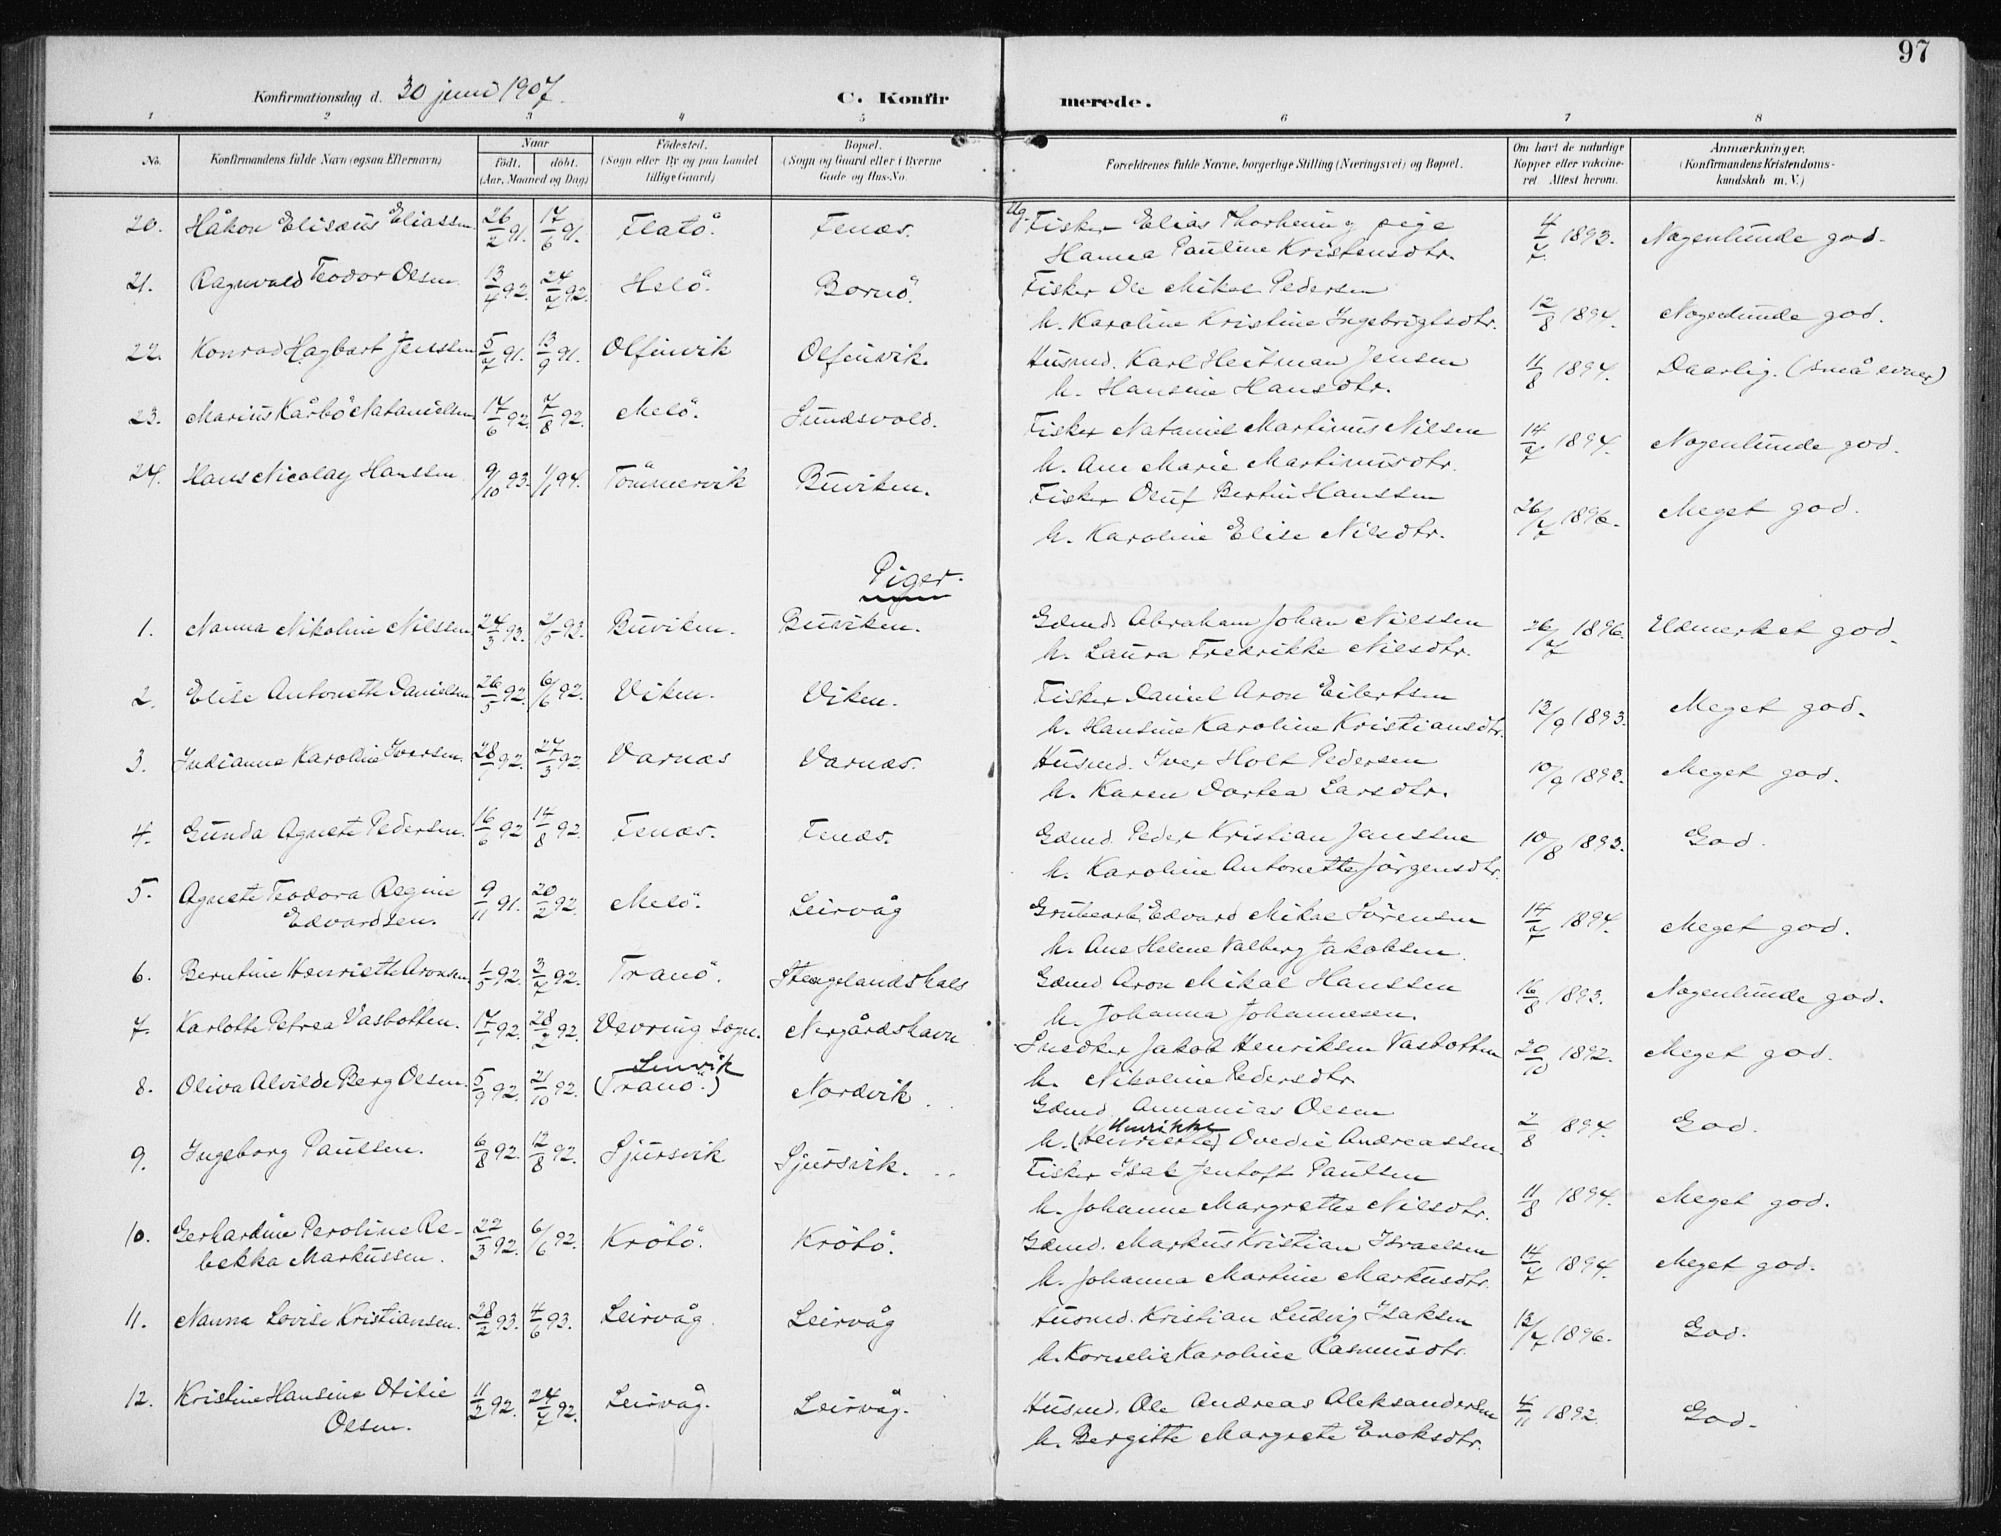 97
Konfirmationsdag d. 30 juni 1907.
C. Konfirmerede.
1 2 3 4 5 6 7 8
No. Konfirmandens fulde Navn (ogsaa Efternavn) Naar født. døbt. (Aar, Maaned og Dag) Fødested. (Sogn eller By og paa Landet tillige Gaard) Bopæl. (Sogn og Gaard eller i Byerne Gade og Hus-No. Forældrenes fulde Navne, borgerlige Stilling (Næringsvei) og Bopæl. Om havt de naturlige Kopper eller vaccineret. Attest herom. Anmærkninger. (Konfirmandens Kristendomskundskab m. V.)
20. Håkon Elisæus Eliassen 26/2 91. 17/6 91. Flatö. Fenæs. Ug. Fisker Elias Thorheim og pige 4/7 1893. Nogenlunde god.
Hanna Pauline Kristensdtr.
21. Ragnvald Teodor Olsen 13/4 92. 24/7 92. Helö. Bornö. Fisker Ole Mikal Pedersen
h. Karoline Kristine Ingebrigtsdtr. 12/8 1894. Nogenlunde god.
22. Konrad Hagbart Jenssen 5/7 91. 13/9 91. Olfinvik Olfinvik. Husmd. Karl Heitman Jensen
h. Hansine Hansdtr. 11/8 1894. Daarlig. (små evner)
23. Marius Kårbö Natanielsen 17/6 92. 7/8 92. Melö. Sundsvold. Fisker Nataniel Martinus Nilsen
h. Ane Marie Martinusdtr. 14/7 1894. Nogenlunde god.
24. Hans Nicolay Hanssen 9/10 93. 1/1 94. Tömmervik Buviken. Fisker Oluf Bertin Hanssen
h. Karoline Elise Nilsdtr. 26/7 1896. Meget god.
Piger.
1. Nanna Nikoline Nilssen 24/3 93. 21/5 93. Buviken. Buviken. Gdmd. Abraham Johan Nilssen
h. Laura Fredrikke Nilsdtr. 26/7 1896. Udmerket god.
2. Elise Antonette Danielsen 26/5 92. 6/6 92. Viken. Viken. Fisker Daniel Aron Eilertsen
h. Hansine Karoline Kristiansdtr. 13/9 1893. Meget god.
3. Indianna Karoline Iversen. 28/1 92. 27/3 92. Varnæs Varnæs. Husmd. Iver Holt Pedersen
h. Karen Dortea Larsdtr. 10/9 1893. Meget god.
4. Gunda Agnete Pedersen. 16/6 92 14/8 92. Fenæs. Fenæs. Gdmd. Peder Kristian Janssen
h. Karoline Antonette Jörgensdtr. 10/8 1893. God.
5. Agnete Teodora Regine 9/11 91. 20/2 92. Melö. Leirvåg Grubearb. Edvard Mikal Sörensen
Edvardsen. h. Ane Helene Valberg Jakobsen. 14/7 1894. Meget god.
6. Berntine Henriette Aronsen 1/5 92. 3/7 92. Tranö. Stangelandshals Gdmd Aron Mikal Hanssen
h. Johanna Johannesen. 16/8 1893. Nogenlunde god.
7. Karlotte Petrea Vasbotten. 17/1 92. 28/2 92. Vevring sogn. Nergårdshavn Snedker Jakob Henriksen Vasbotten
h. Nikoline Pedersdtr. 20/10 1892. Meget god.
8. Oliva Alvilde Berg Olsen. 5/9 92. 21/10 92. Lenvik (Tranö.) Nordvik. Gdmd. Annanias Olsen
h. (Henriette) Henrikke Ovedie Andreassen 2/8 1894. God.
9. Ingeborg Paulsen. 6/8 92. 12/8 92. Gjursvik Gjursvik. Fisker Isak Jentoft Paulsen
h. Johanne Margrethe Nilsdtr. 11/8 1894. Meget god.
10. Gerhardine Peroline Re- 22/3 92. 6/6 92. Krötö. Krötö. Gdmd. Markus Kristian Israelsen
bekka Markussen. h. Johanna Martine Markusdtr. 14/7 1894. Meget god.
11. Nanna Lovise Kristiansen. 28/2 93. 4/6 93. Leirvåg. Leirvåg Husmd. Kristian Ludvig Isaksen
h. Kornelia Karoline Rasmusdtr. 13/7 1896. God.
12. Kristine Hansine Otilie 11/2 92. 24/7 92. Leirvåg. Leirvåg. Husmd. Ole Andreas Aleksandersen
Olsen. h. Bergitte Margrete Enoksdtr. 4/11 1892. God.